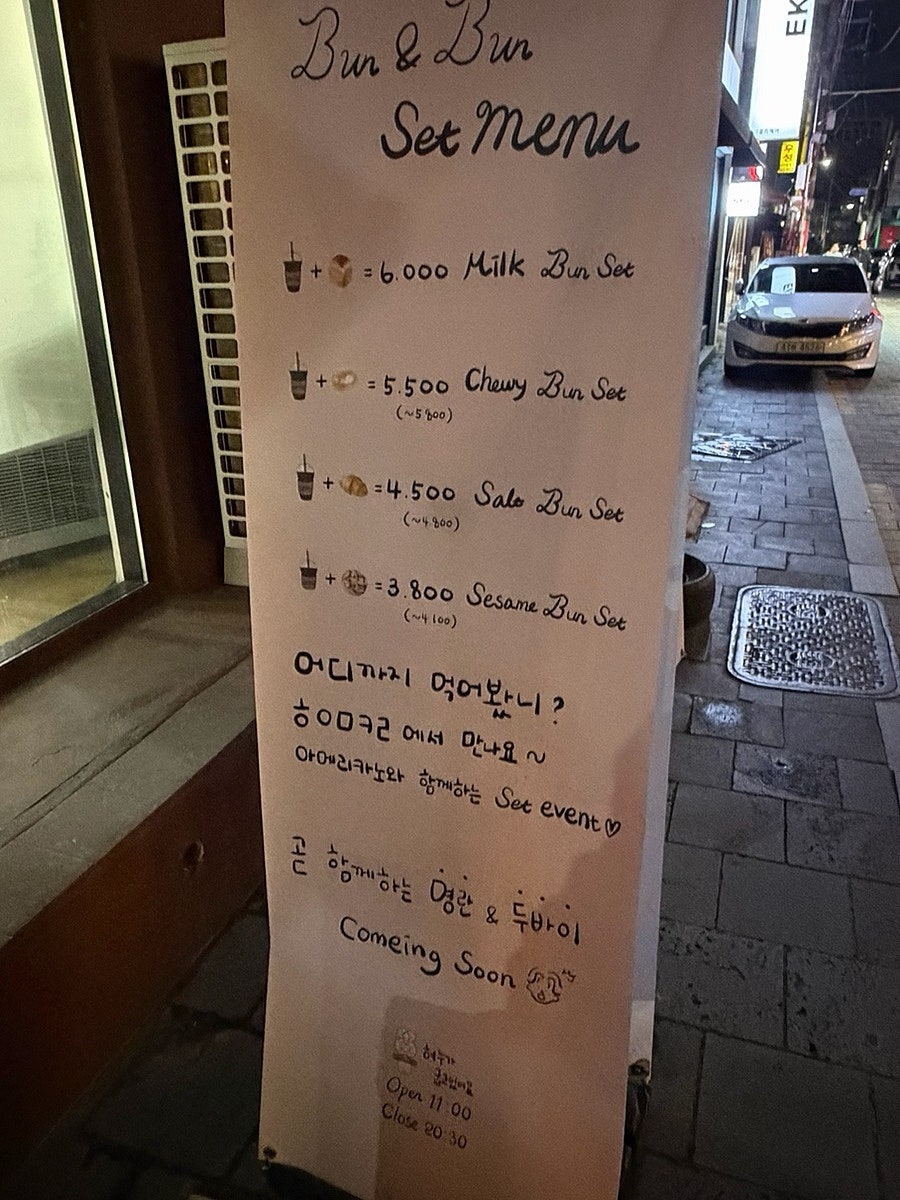 Bun & Bun
Set menu
+ = 6.000 Milk Bun Set
+ = 5.500 Chewy Bun Set
(~5800)
+ = 4.500 Salt Bun Set
(~4.800)
+ = 3.800 Sesame Bun Set
(~4100)
어디까지 먹어봤니?
ㅎㅇㅁㅋㄹ 에서 만나요~
아메리카노와 함께하는 Set event♡
곧 함께하는 명란 & 두바이
Comeing Soon
Open 11:00
Close 20:30
EK